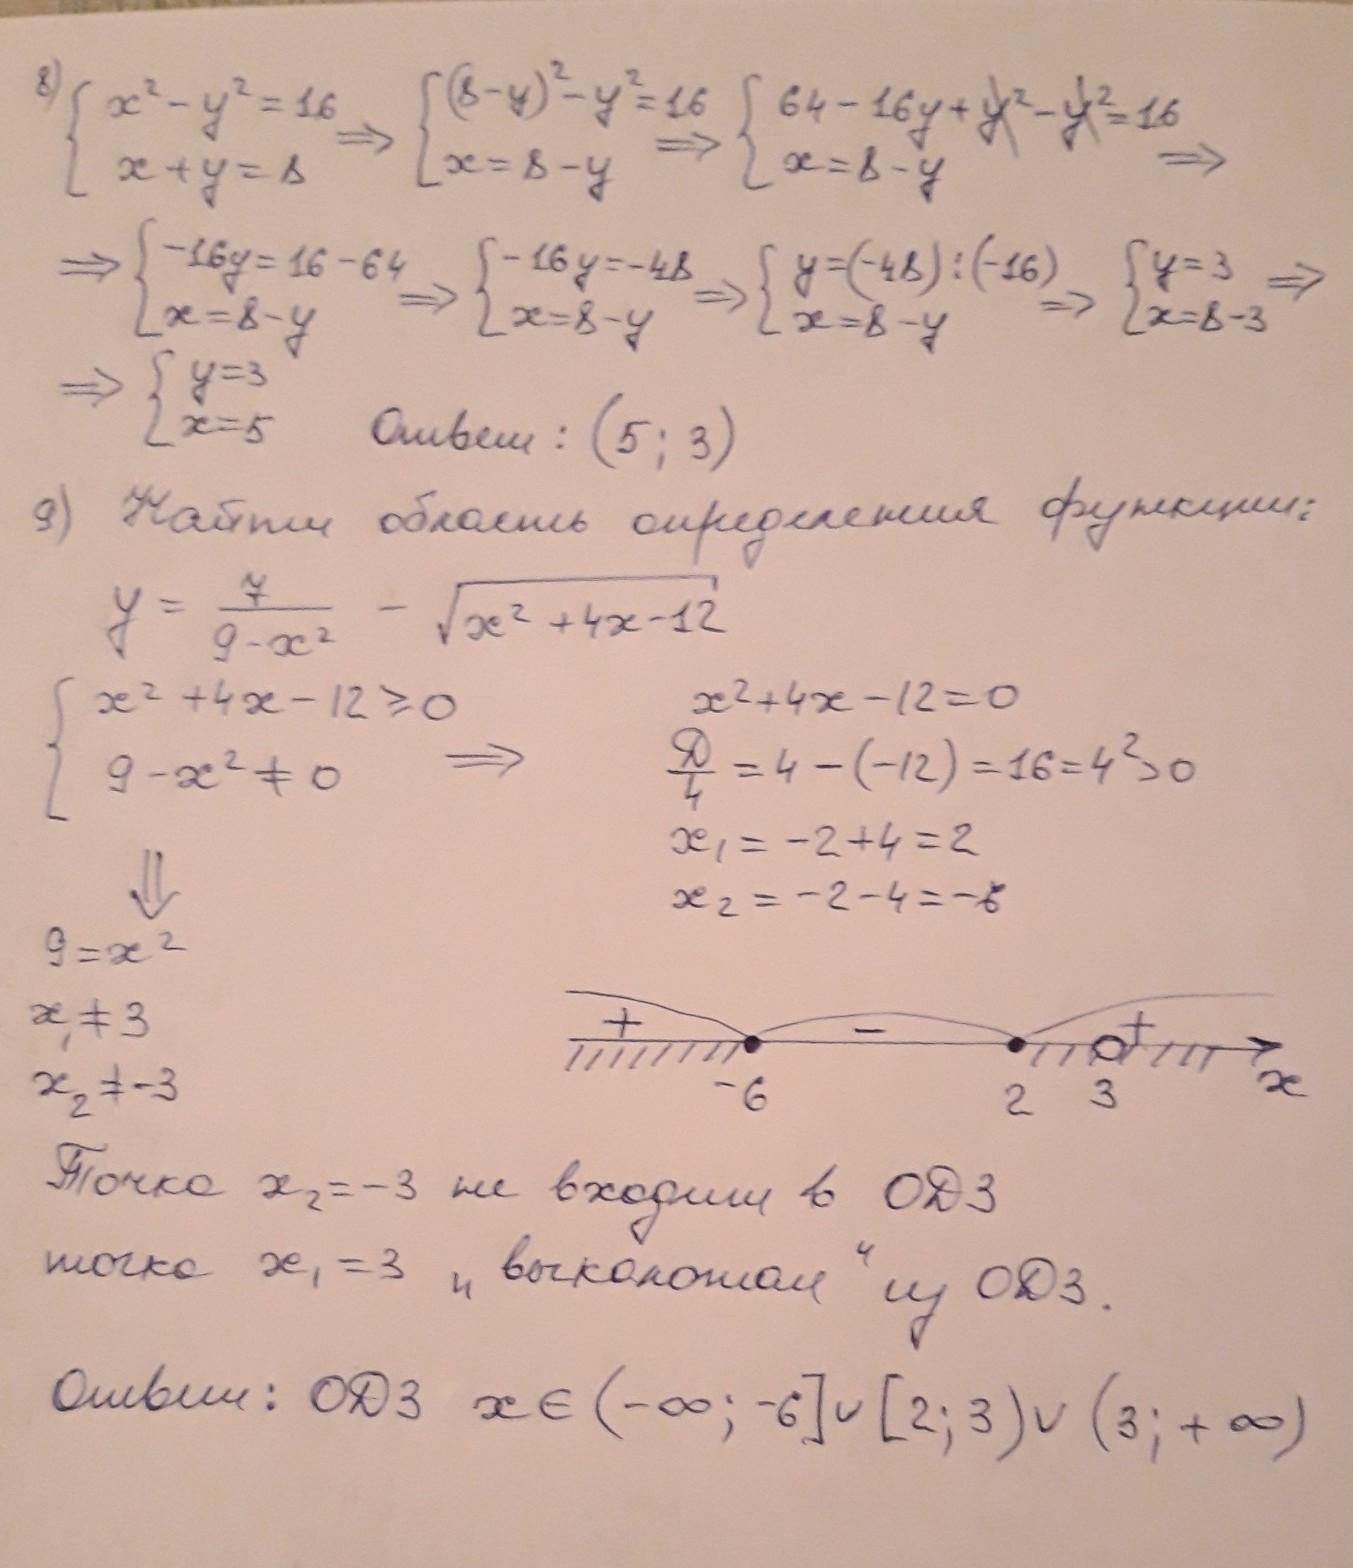 8) { x² - y² = 16 ⇒ { (8-y)² - y² = 16 ⇒ { 64 - 16y + y² - y² = 16
x + y = 8 x = 8 - y x = 8 - y ⇒
⇒ { -16y = 16 - 64 ⇒ { -16y = -48 ⇒ { y = (-48) : (-16) ⇒ { y = 3 ⇒
x = 8 - y x = 8 - y x = 8 - y x = 8 - 3
⇒ { y = 3
x = 5 Ответ : (5 ; 3)
9) Найти область определения функции:
y = 7/(9 - x²) - √(x² + 4x - 12)
{ x² + 4x - 12 ≥ 0
9 - x² ≠ 0 ⇒
x² + 4x - 12 = 0
D/4 = 4 - (-12) = 16 = 4² > 0
x₁ = -2 + 4 = 2
x₂ = -2 - 4 = -6
⇓
9 = x²
x₁ ≠ 3
x₂ ≠ -3
+ - +
-6 2 3 x
Точка x₂ = -3 не входит в ОДЗ
точка x₁ = 3 „выколотая“ из ОДЗ.
Ответ: ОДЗ x ∈ (-∞; -6] ∪ [2; 3) ∪ (3; +∞)